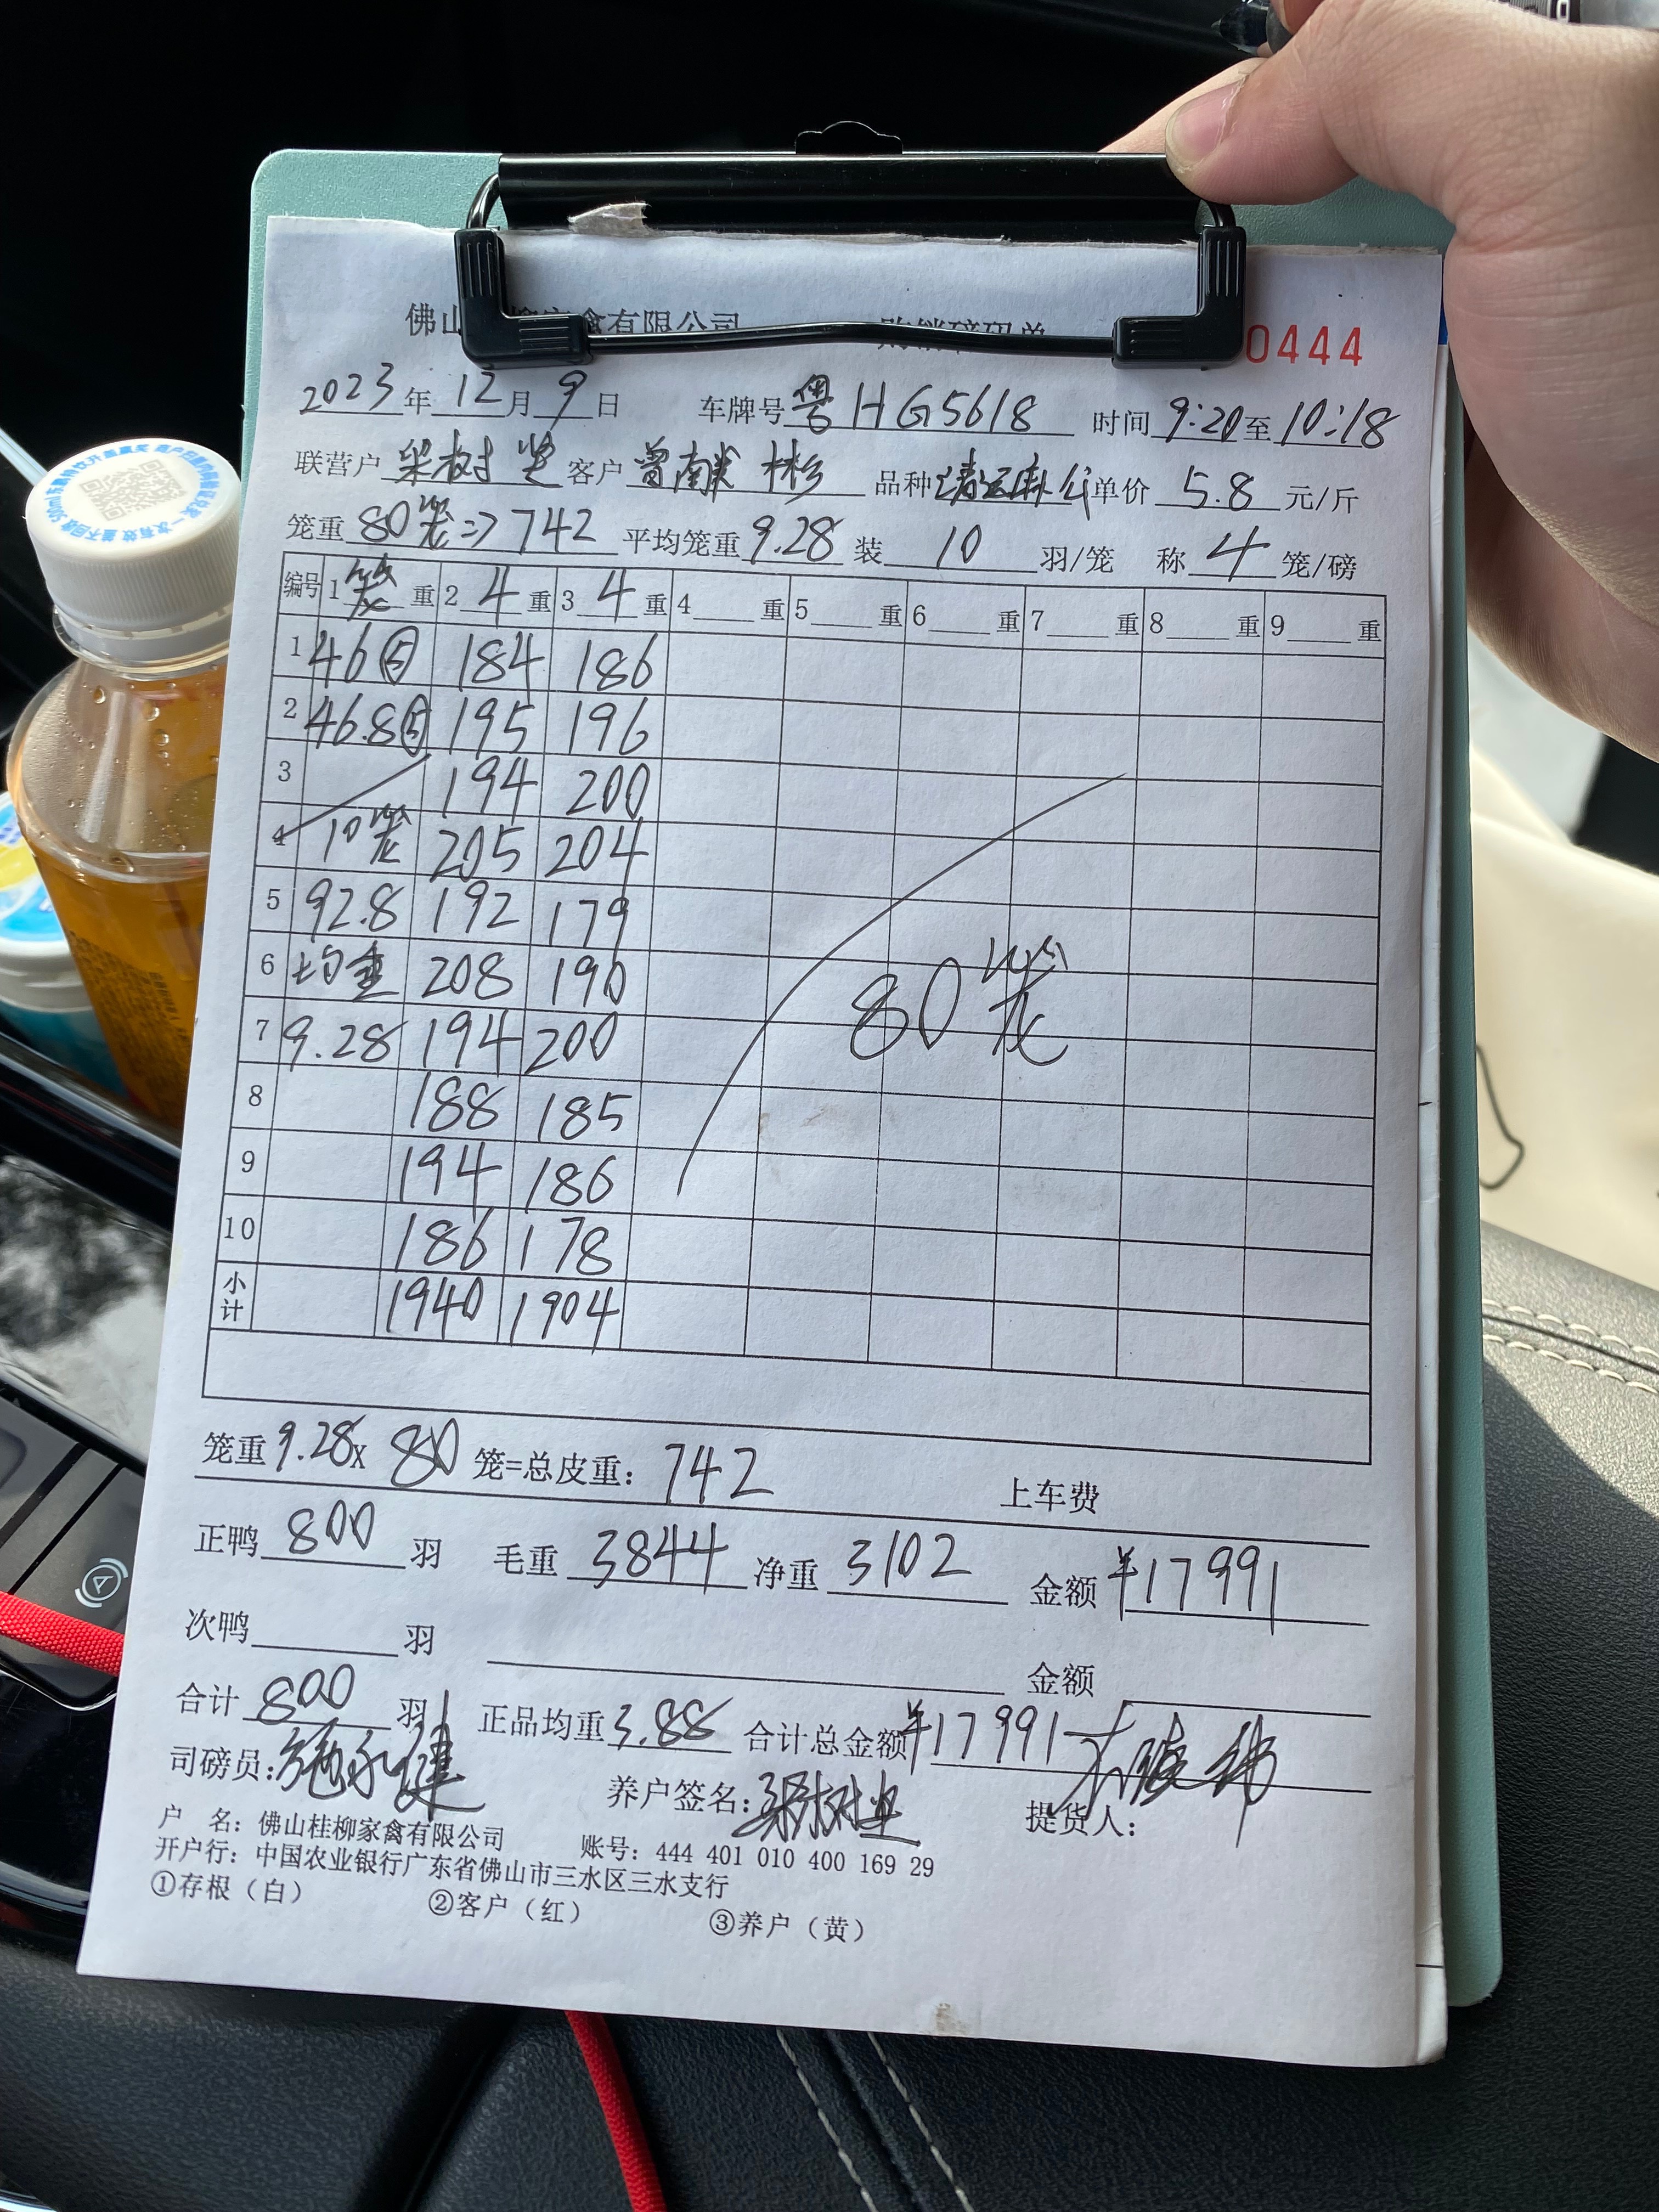 佛山桂柳家禽有限公司 购销磅码单 0444
2023年12月9日 车牌号粤HG5618 时间9:20至10:18
联营户梁树 客户曾 彬 品种清远麻 单价5.8元/斤
笼重80笼=>742 平均笼重9.28 装10羽/笼 称4笼/磅
编号 1笼重 2 4重 3 4重 4 重 5 重 6 重 7 重 8 重 9 重
1 46⑤ 184 186
2 46.8⑤ 195 196
3 194 200
4 10笼 205 204
5 92.8 192 179
6 均重 208 190
7 9.28 194 200
80笼
8 188 185
9 194 186
10 186 178
小计 1940 1904
笼重9.28x 80笼=总皮重:742 上车费
正鸭800羽 毛重3844 净重3102 金额¥17991
次鸭 羽 金额
合计800羽 正品均重3.88 合计总金额¥17991
司磅员:施永健 养户签名:梁树 提货人:
户 名:佛山桂柳家禽有限公司 账号:444 401 010 400 169 29
开户行:中国农业银行广东省佛山市三水区三水支行
①存根(白) ②客户(红) ③养户(黄)